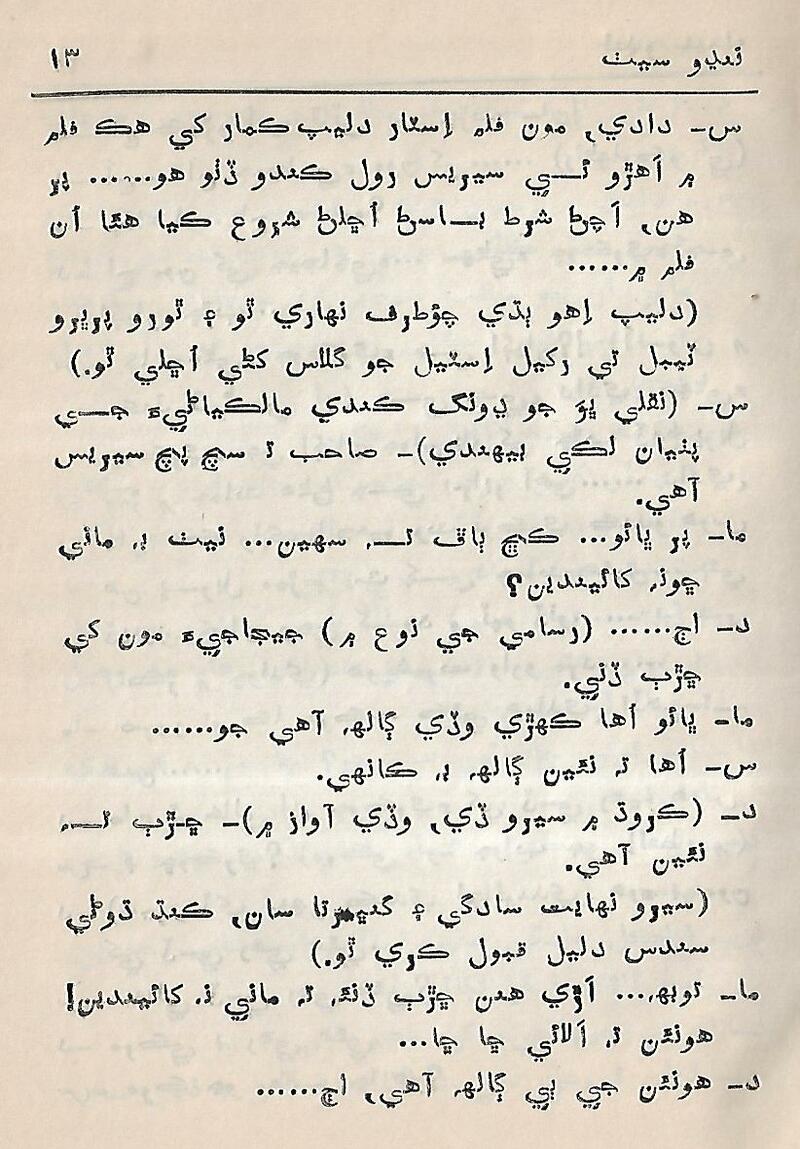 ننڍو سيٺ ١٣
س- دادي، مون فلم اِسٽار دليپ ڪمار کي هڪ فلم
۾ اَهڙو ئي سيريس رول ڪندو ڏٺو هو...... پر
هن، اَچڻ شرط باسڻ اُڇلڻ شروع ڪيا هئا اُن
فلم ۾......
(دليپ اِهو ٻڌي چؤطرف نهاري ٿو ۽ ٿورو پرڀرو
ٽيبل تي رکيل اِسٽيل جو گلاس کڻي اُڇلي ٿو.)
س- (نقلي ڀؤ جو ڍونگ ڪندي مالڪياڻيءَ جي
پٺيان لڪي بيهندي)- صاحب ته سچ پچ سيريس
آهي.
ما- پر ڀائو... ڪڇ ٻاڦ ته سهين... نيٺ به ماني
ڇونه کائيندين؟
د- اڄ...... (رسامي جي نوع ۾) جيجاجيءَ مون کي
ڇڙٻ ڏني.
ما- ڀائو اُها ڪهڙي وڏي ڳالهه آهي جو......
س- اُها ته نئين ڳالهه به ڪانهي.
د- (ڪروڌ ۾ سيرو ڏي، وڏي آواز ۾)- ڇڙٻ ته
نئين آهي.
(سيرو نهايت سادگي ۽ گنڀيرتا سان، ڪنڌ ڌوڻي
سندس دليل قبول ڪري ٿو.)
ما- توبهه... اَڙي هنن ڇڙٻ ڏنئه ته ماني نه کائيندين!
هونئن ته اَلائي ڇا ڇا...
د- هونئن جي ٻي ڳالهه آهي، اڄ......